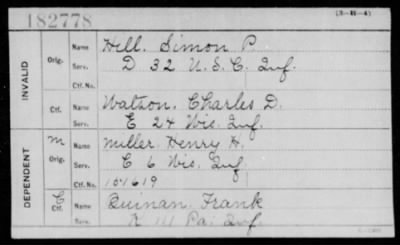 182778
(3-H-4)
INVALID
Orig. Name Hill, Simon P.
Serv. D 32 U.S.C. Inf.
Ctf. No.
Ctf. Name Watson, Charles D.
Serv. E 24 Wis. Inf.
DEPENDENT
M Orig. Name Miller Henry H.
Serv. C 6 Wis. Inf
Ctf. No. 101619
C Ctf. Name Quinan Frank
Serv. K 111 Pa. Inf.